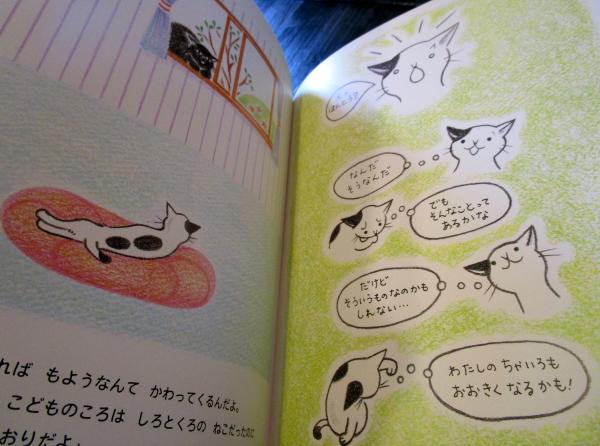 れば もようなんて かわってくるんだよ。
こどものころは しろとくろの ねこだったのに
おりだよ
ほんとう?
なんだ
そうなんだ
でも
そんなことって
あるかな
だけど
そういうものなのかも
しれない…
わたしの ちゃいろも
おおきく なるかも!